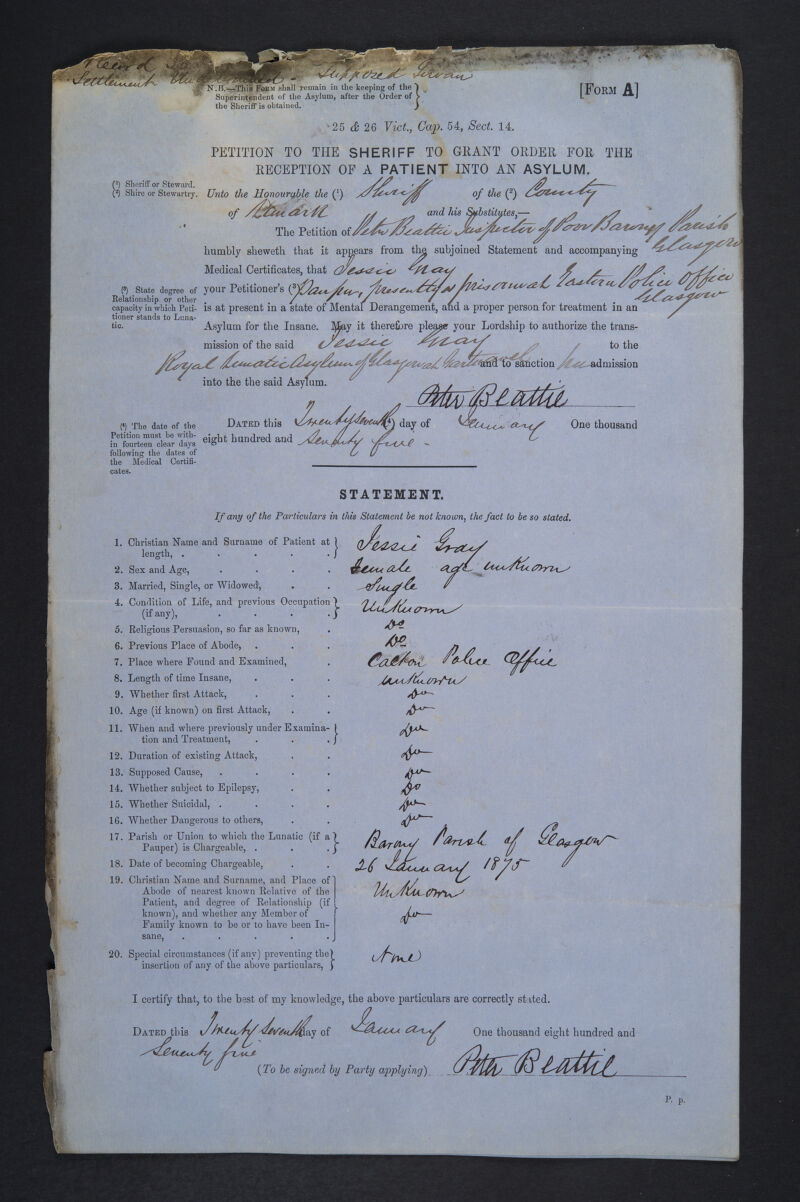 Settlement - Supposed Girvan
N.B.—This Form shall remain in the keeping of the
Superintendent of the Asylum, after the Order of
the Sheriff is obtained.
[Form A]
25 & 26 Vict., Cap. 54, Sect. 14.
PETITION TO THE SHERIFF TO GRANT ORDER FOR THE
RECEPTION OF A PATIENT INTO AN ASYLUM.
(1) Sheriff or Steward.
(2) Shire or Stewartry.
Unto the Honourable the (1) Sheriff of the (2) County
of Lanark and his Substitutes,—
The Petition of Peter Beattie Inspector of Poor Barony Parish Glasgow
humbly sheweth that it appears from the subjoined Statement and accompanying
Medical Certificates, that Jessie Gray
(3) State degree of
Relationship or other
capacity in which Peti-
tioner stands to Luna-
tic.
your Petitioner's (3) Pauper, presently a prisoner at Eastern Police Office Glasgow
is at present in a state of Mental Derangement, and a proper person for treatment in an
Asylum for the Insane. May it therefore please your Lordship to authorize the trans-
mission of the said Jessie Gray to the
Royal Lunatic Asylum of Glasgow at Gartnavel and to sanction her admission
into the the said Asylum.
Peter Beattie
(4) The date of the
Petition must be with-
in fourteen clear days
following the dates of
the Medical Certifi-
cates.
Dated this Twenty Seventh (4) day of January One thousand
eight hundred and Seventy five -
STATEMENT.
If any of the Particulars in this Statement be not known, the fact to be so stated.
1. Christian Name and Surname of Patient at
length, . . . . . . Jessie Gray
2. Sex and Age, . . . . Female age unknown
3. Married, Single, or Widowed, . . Single
4. Condition of Life, and previous Occupation
(if any), . . . . Unknown
5. Religious Persuasion, so far as known, . Do
6. Previous Place of Abode, . . . Do
7. Place where Found and Examined, . Calton Police Office
8. Length of time Insane, . . . unknown
9. Whether first Attack, . . . Do
10. Age (if known) on first Attack, . . Do
11. When and where previously under Examina-
tion and Treatment, . . . Do
12. Duration of existing Attack, . . Do
13. Supposed Cause, . . . . Do
14. Whether subject to Epilepsy, . . Do
15. Whether Suicidal, . . . . Do
16. Whether Dangerous to others, . . Do
17. Parish or Union to which the Lunatic (if a
Pauper) is Chargeable, . . . Barony Parish of Glasgow
18. Date of becoming Chargeable, . . 26 January 1875
19. Christian Name and Surname, and Place of
Abode of nearest known Relative of the
Patient, and degree of Relationship (if
known), and whether any Member of
Family known to be or to have been In-
sane, . . . . . .
Unknown
Do
20. Special circumstances (if any) preventing the
insertion of any of the above particulars, None
I certify that, to the best of my knowledge, the above particulars are correctly stated.
Dated this Twenty Seventh day of January One thousand eight hundred and
Seventy five
(To be signed by Party applying) Peter Beattie
P. p.